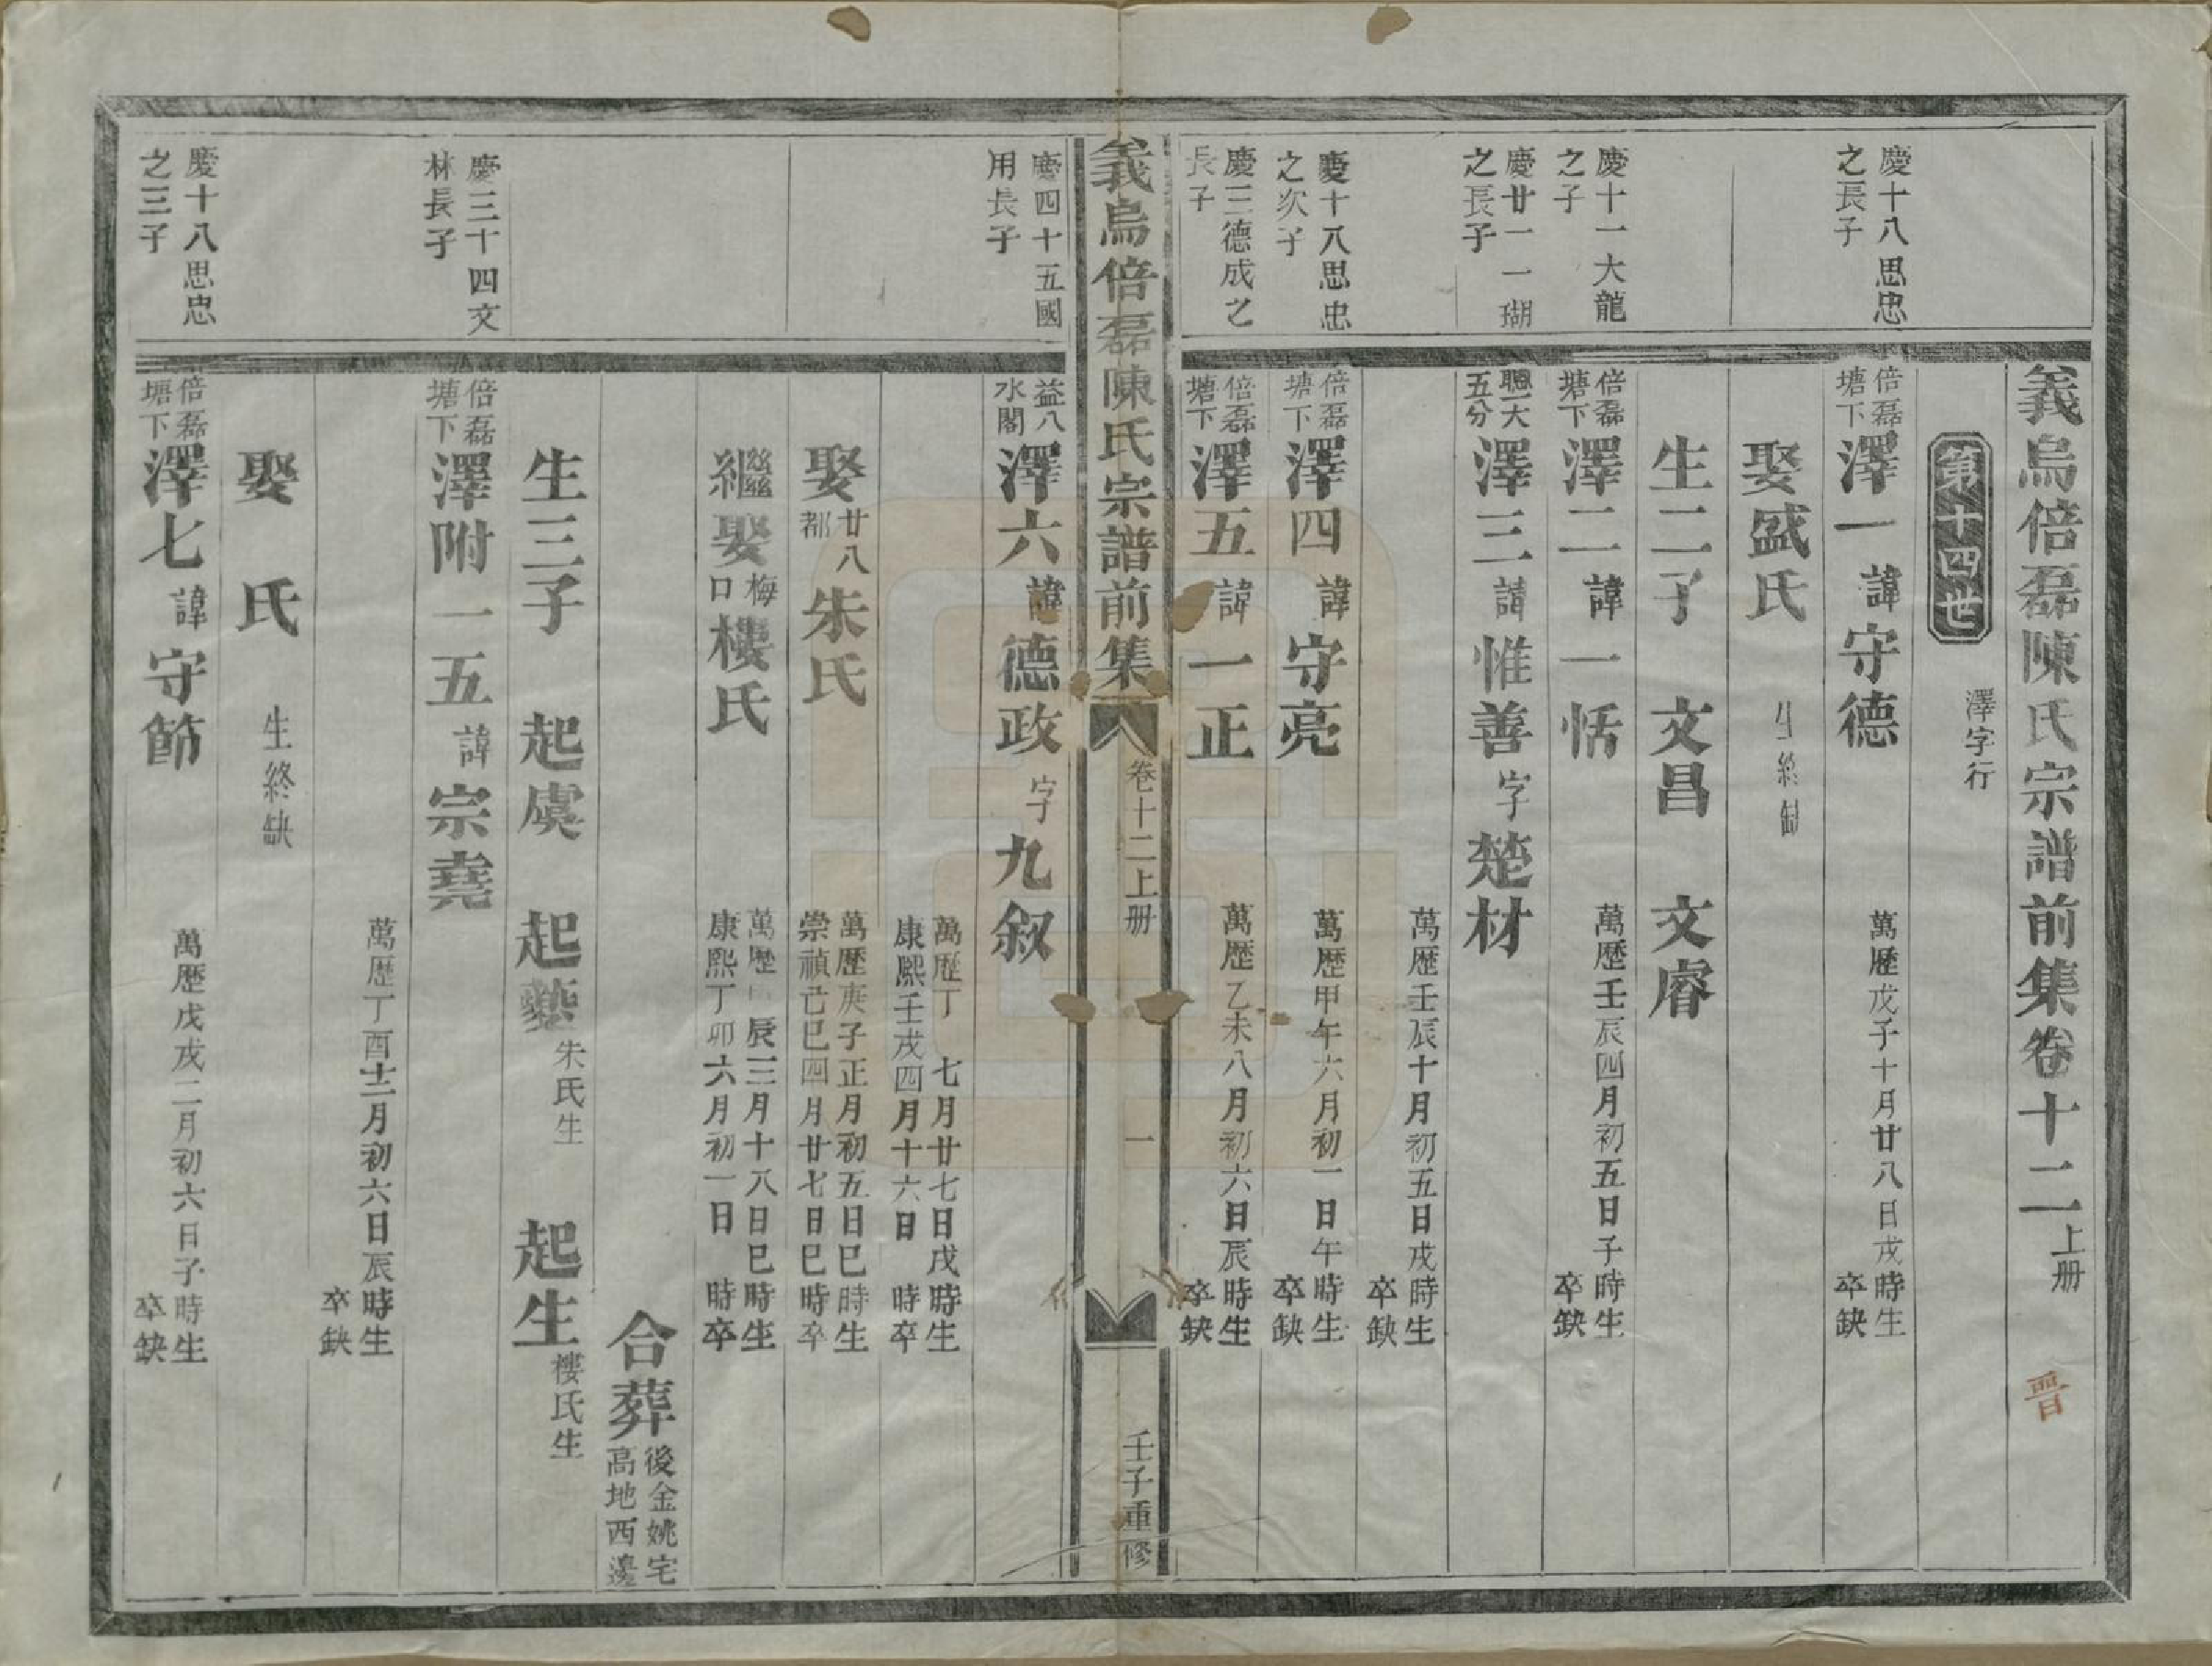 義烏倍磊陳氏宗譜前集卷十二上册
晋
第十四世
澤字行
慶十八思忠
之長子
倍磊
塘下
澤一諱守德
萬歷戊子十月廿八日戌時生
卒缺
娶盛氏 生終缺
生二子 文昌 文睿
慶十一大龍
之子
倍磊
塘下
澤二諱一恬
萬歷壬辰四月初五日子時生
卒缺
慶廿一一瑚
之長子
聰一大
五分
澤三諱惟善字楚材
萬歷壬辰十月初五日戌時生
卒缺
慶十八思忠
之次子
倍磊
塘下
澤四諱守亮
萬歷甲午六月初一日午時生
卒缺
慶三德成之
長子
倍磊
塘下
澤五諱一正
萬歷乙未八月初六日辰時生
卒缺
義烏倍磊陳氏宗譜前集
卷十二上册
一
壬子重修
慶四十五國
用長子
益八
水閣
澤六諱德政字九叙
萬歷丁 七月廿七日戌時生
康熙壬戌四月十六日 時卒
娶廿八都朱氏
萬歷庚子正月初五日巳時生
崇禎己巳四月廿七日巳時卒
繼娶梅口樓氏
萬歷 辰三月十八日巳時生
康熙丁卯六月初一日 時卒
合葬
後金姚宅
高地西邊
生三子 起虞 起藝朱氏生 起生樓氏生
慶三十四文
林長子
倍磊
塘下
澤附一五諱宗堯
萬歷丁酉十二月初六日辰時生
卒缺
娶 氏 生終缺
慶十八思忠
之三子
倍磊
塘下
澤七諱守節
萬歷戊戌二月初六日子時生
卒缺